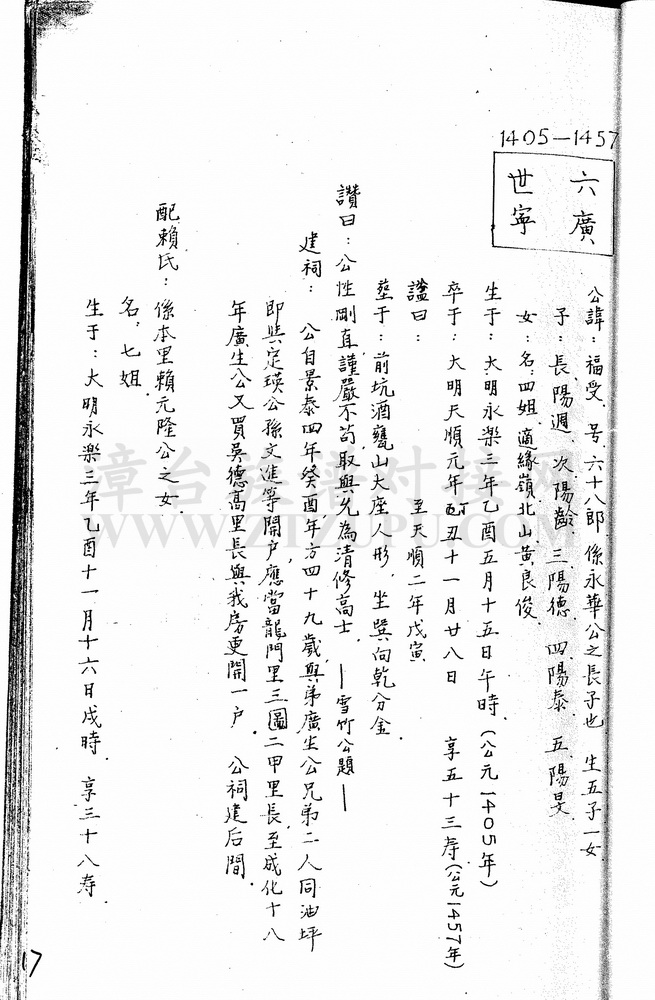 1405—1457
六世
廣寧
公諱：福受 号六十八郎 係永華公之長子也 生五子一女
子：長陽週 次陽齡 三陽德 四陽泰 五陽旻
女：名：四姐 適緣嶺北山黃良俊
生于：大明永樂三年乙酉五月十五日午時（公元1405年）
卒于：大明天順元年丁丑十一月廿八日 享五十三寿（公元1457年）
謚曰： 至天順二年戊寅
塟于：前坑酒甕山大座人形，坐巽向乾分金
讚曰：公性剛直謹嚴不苟取與允為清修高士 —雪竹公題—
建祠：公自景泰四年癸酉年方四十九歲與弟廣生公兄弟二人同油坪
即與定瑛公孫文進等開户應當龍門里三圖二甲里長，至成化十八
年廣生公又買吳德高里長與我房更開一户 公祠建后間．
配賴氏：係本里賴元隆公之女
名：七姐
生于：大明永樂三年乙酉十一月十六日戌時 享三十八寿
17
漳台族譜对接网
WWW.ZTZUPU.COM